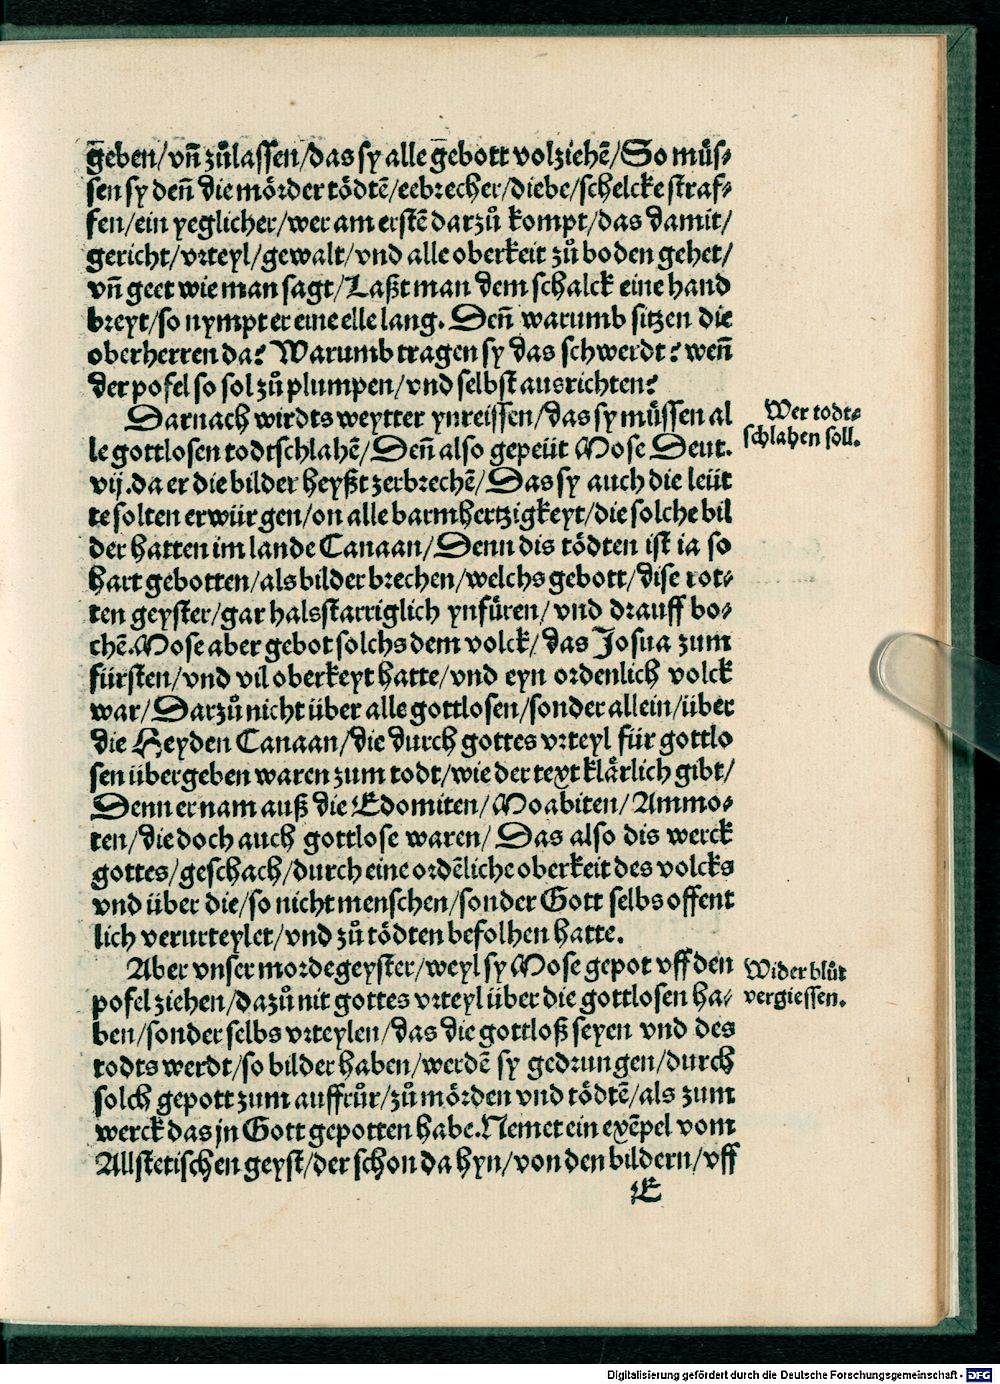 geben/vn̄ zůlassen/das sy alle gebott volziehē/So müs⸗
sen sy deñ die mörder tödtē/eebrecher/diebe/schelcke straf⸗
fen/ein yeglicher/wer am erstē darzů kompt/das damit/
gericht/vrteyl/gewalt/vnd alle oberkeit zů boden gehet/
vn̄ geet wie man sagt/Laßt man dem schalck eine hand
breyt/so nympt er eine elle lang. Deñ warumb sitzen die
oberherren da? Warumb tragen sy das schwerdt? weñ
der pofel so sol zů plumpen/vnd selbst ausrichten?
Darnach wirdts weytter ynreissen/das sy müssen al
le gottlosen todtschlahē/Deñ also gepeüt Mose Deut.
vij.da er die bilder heyßt zerbrechē/Das sy auch die leüt
te solten erwürgen/on alle barmhertzigkeyt/die solche bil
der hatten im lande Canaan/Denn dis tödten ist ia so
hart gebotten/als bilder brechen/welchs gebott/dise rot⸗
ten geyster/gar halsstarriglich ynfüren/vnd drauff bo⸗
chē.Mose aber gebot solchs dem volck/das Josua zum
fürsten/vnd vil oberkeyt hatte/vnd eyn ordenlich volck
war/Darzů nicht über alle gottlosen/sonder allein/über
die Heyden Canaan/die durch gottes vrteyl für gottlo
sen übergeben waren zum todt/wie der text klärlich gibt/
Denn er nam auß die Edomiten/Moabiten/Ammo⸗
ten/die doch auch gottlose waren/Das also dis werck
gottes/geschach/durch eine ordēliche oberkeit des volcks
vnd über die/so nicht menschen/sonder Gott selbs offent
lich verurteylet/vnd zů tödten befolhen hatte.
Aber vnser mordegeyster/weyl sy Mose gepot vff den
pofel ziehen/dazů nit gottes vrteyl über die gottlosen ha⸗
ben/sonder selbs vrteylen/das die gottloß seyen vnd des
todts werdt/so bilder haben/werdē sy gedrungen/durch
solch gepott zum auffrůr/zů mörden vnd tödtē/als zum
werck das jn Gott gepotten habe.Nemet ein exēpel vom
Allstetischen geyst/der schon da hyn/von den bildern/vff
E
Wer todt⸗
schlahen soll.
Wider blůt
vergiessen.
Digitalisierung gefördert durch die Deutsche Forschungsgemeinschaft - DFG